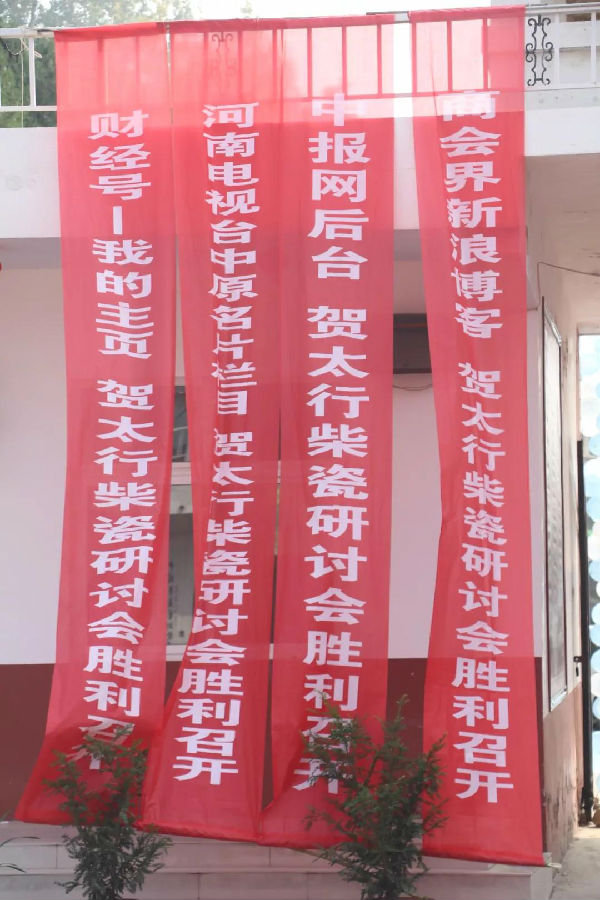 财经号—我的主页 贺太行柴瓷研讨会胜利召开
河南电视台中原名片栏目 贺太行柴瓷研讨会胜利召开
中报网后台 贺太行柴瓷研讨会胜利召开
商会界新浪博客 贺太行柴瓷研讨会胜利召开